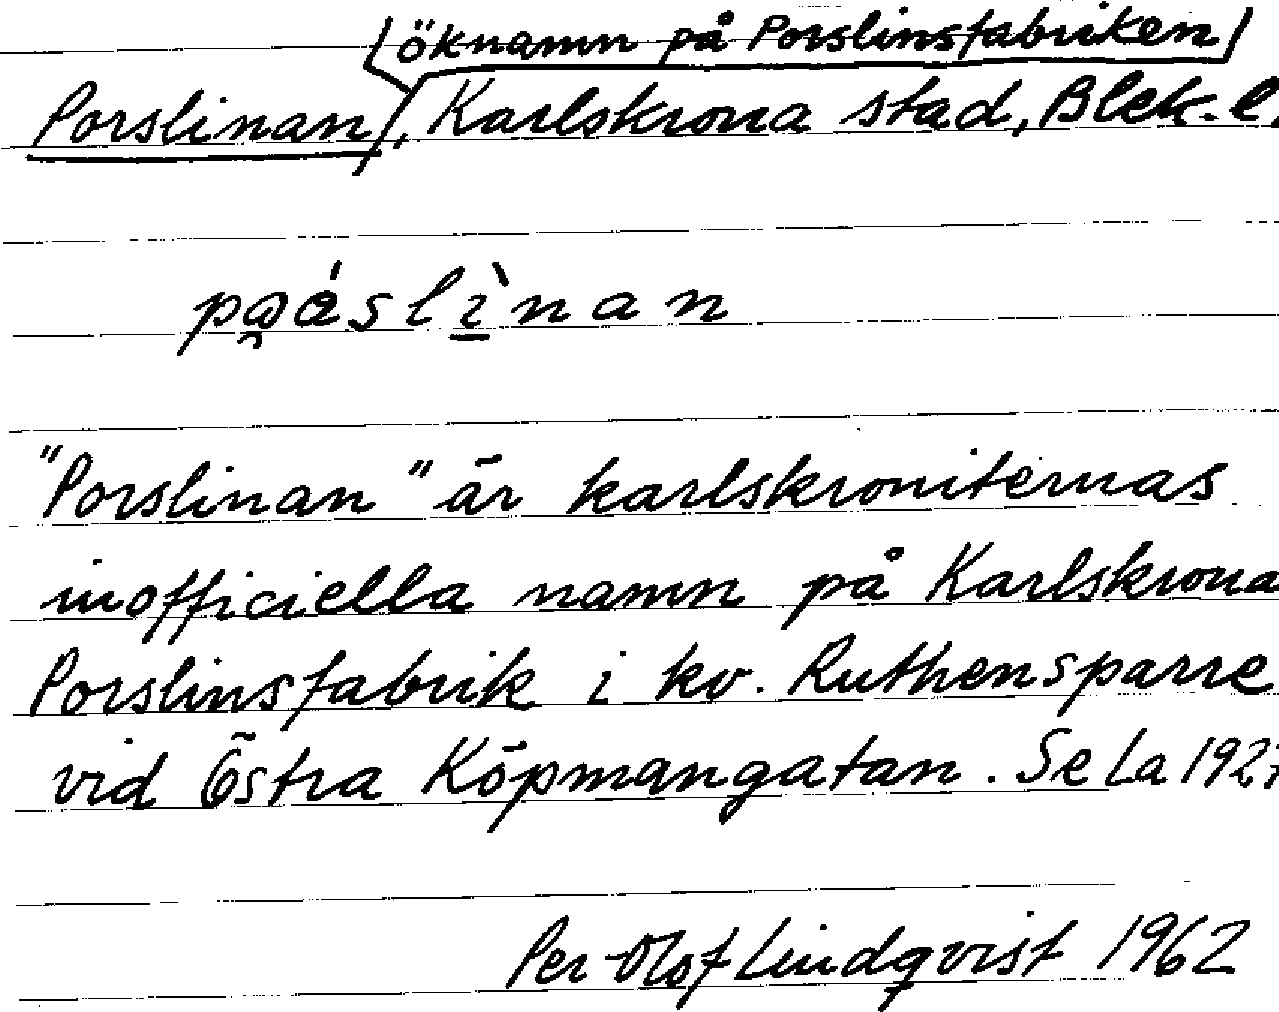 (öknamn på Porslinsfabriken)
Porslinan, Karlskrona stad, Blek. l.
"Porslinan" är karlskroniternas
inofficiella namn på Karlskrona
Porslinsfabrik i kv. Ruthensparre
vid Östra Köpmangatan. Se La 1927
Per-Olof Lindqvist 1962